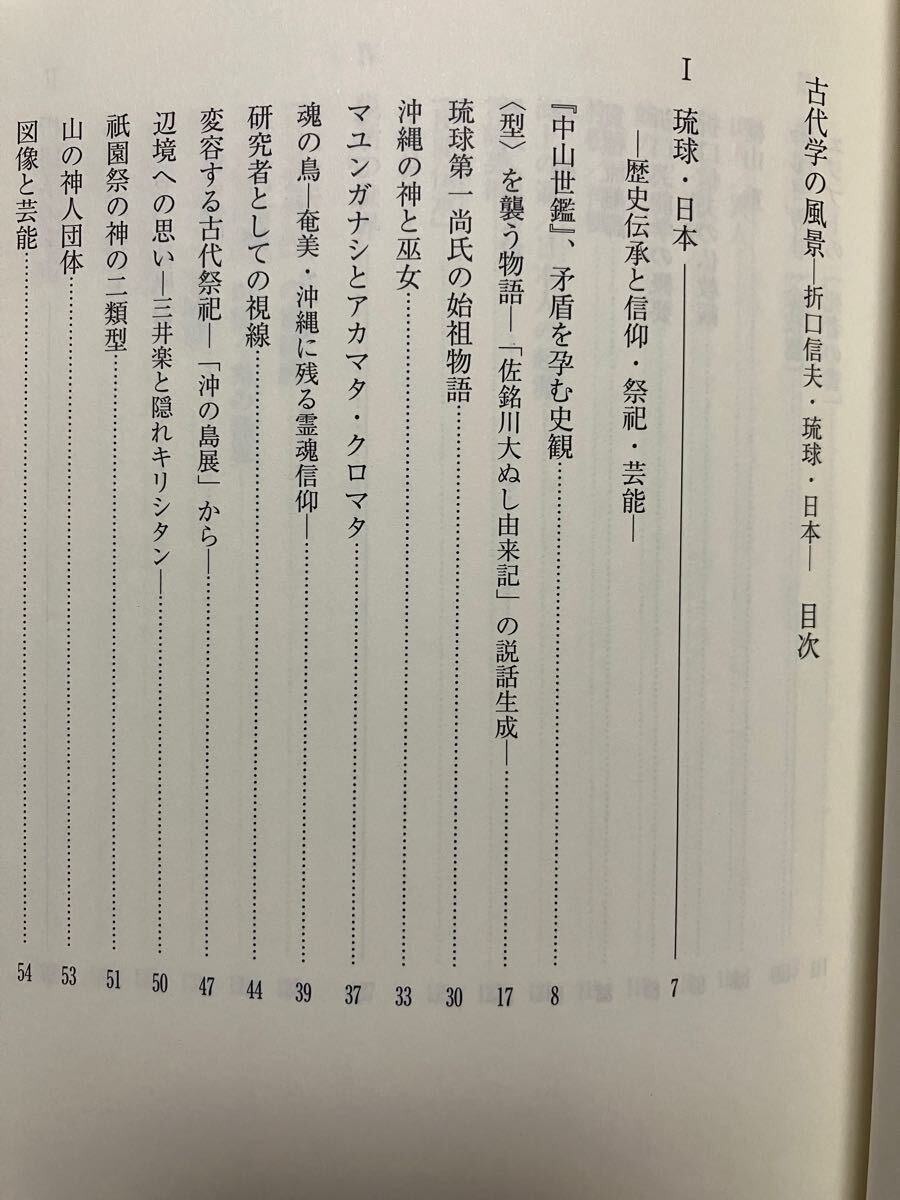 古代学の風景―折口信夫・琉球・日本― 目次
Ⅰ 琉球・日本 ――――――――――― 7
―歴史伝承と信仰・祭祀・芸能―
『中山世鑑』、矛盾を孕む史観……………………… 8
〈型〉を襲う物語―「佐銘川大ぬし由来記」の説話生成―……………………… 17
琉球第一尚氏の始祖物語……………………… 30
沖縄の神と巫女……………………… 33
マユンガナシとアカマタ・クロマタ……………………… 37
魂の鳥―奄美・沖縄に残る霊魂信仰―……………………… 39
研究者としての視線……………………… 44
変容する古代祭祀―「沖の島展」から―……………………… 47
辺境への思い―三井楽と隠れキリシタン―……………………… 50
祇園祭の神の二類型……………………… 51
山の神人団体……………………… 53
図像と芸能……………………… 54